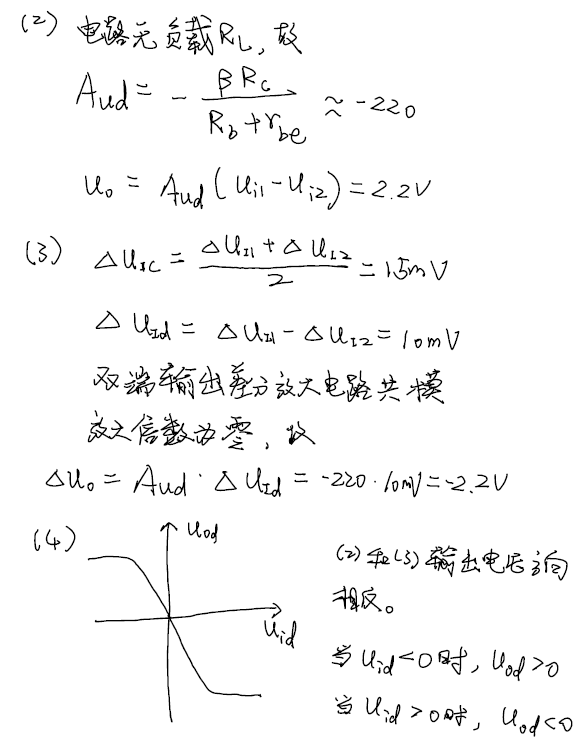 (2) 电路无负载RL，故
Aud = - βRc / (Rb + rbe) ≈ -220
uo = Aud (ui1 - ui2) = 2.2V
(3) △uIC = (△uI1 + △uI2) / 2 = 15mV
△uId = △uI1 - △uI2 = 10mV
双端输出差分放大电路共模
放大倍数为零，故
△uo = Aud · △uId = -220 · 10mV = -2.2V
(4) uod
uid
(2)和(3)输出电压方向
相反。
当 uid < 0时，uod > 0
当 uid > 0时，uod < 0